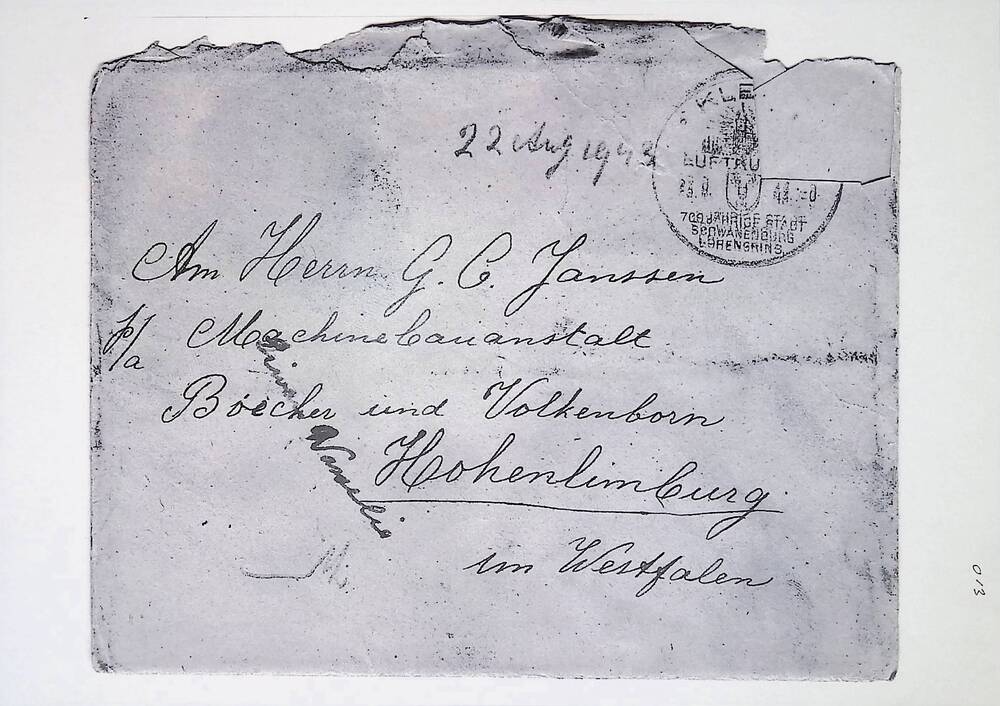 22 Aug 1943
KLE
LUFTKU
700 JÄHRIGE STADT
SCHWANENBURG
LOHENGRINS
Am Herrn G. C. Janssen
p/a Machinebauanstalt
Boecher und Volkenborn
Hohenlimburg
im Westfalen
013